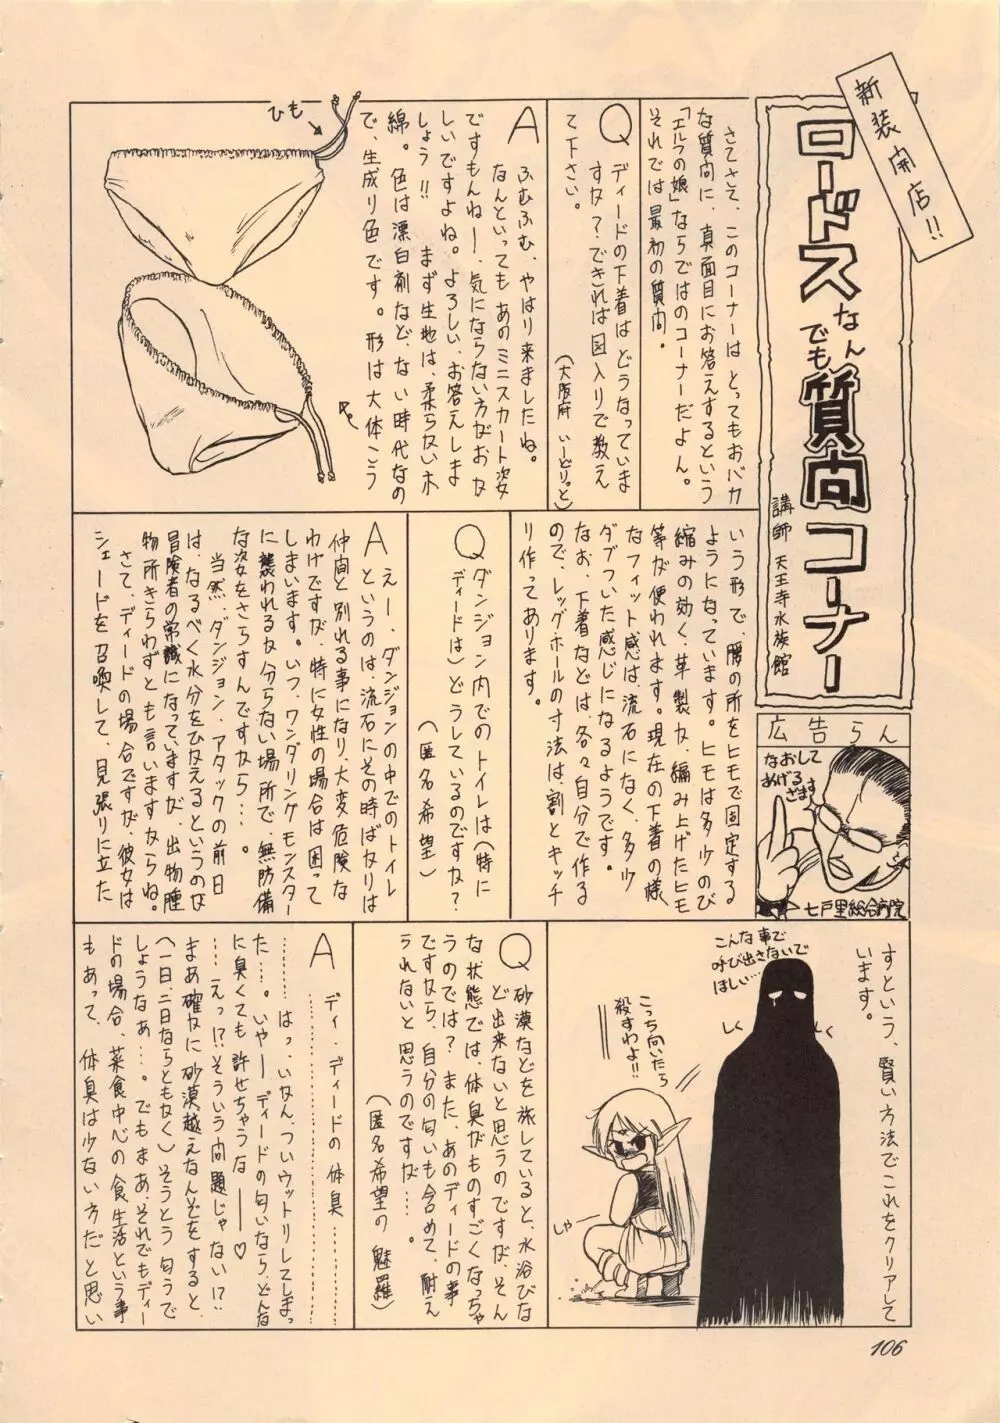 新装開店!!
ロードスなんでも質問コーナー
講師 天王寺水族館
さてさて、このコーナーは とってもおバカ
な質問に、真面目にお答えするという
「エルフの娘」ならではのコーナーだよん。
それでは最初の質問。
Q ディードの下着は どうなっていま
すか?できれば図入りで教え
て下さい。
(大阪府 いーどりっと)
A ふむふむ、やはり来ましたね。
なんといっても あのミニスカート姿
ですもんねー、気にならない方がおか
しいですよね。よろしい、お答えしま
しょう!! まず生地は、柔らかい木
綿。色は漂白剤など、ない時代なの
で、生成り色です。形は大体こう
ひも
いう形で、腰の所をヒモで固定する
ようになっています。ヒモは多少のび
縮みの効く、革製か、編み上げたヒモ
等が使われます。現在の下着の様
なフィット感は、流石になく、多少
ダブついた感じになるようです。
なお、下着などは各々自分で作る
ので、レッグホールの寸法は、割とキッチ
リ作ってあります。
Q ダンジョン内でのトイレは(特に
ディードは)どうしているのですか?
(匿名希望)
A えー、ダンジョンの中でのトイレ
というのは、流石にその時ばかりは
仲間と別れる事になり、大変危険な
わけですが、特に女性の場合は困って
しまいます。いつ、ワンダリングモンスター
に襲われるか分らない場所で、無防備
な姿をさらすんですから…。
当然、ダンジョン・アタックの前日
は、なるべく水分をひかえるというのが
冒険者の常識になっていますが、出物腫
物所きらわずとも言いますからね。
さて、ディードの場合ですが、彼女は
シェードを召喚して、見張りに立た
広告らん
なおして
あげる
ざます
七戸里総合病院
すという、賢い方法でこれをクリアして
います。
こんな事で
呼び出さないで
ほしい…
しく
しく
こっち向いたら
殺すわよ!!
しゃー
Q 砂漠などを旅していると、水浴びな
ど出来ないと思うのですが、そん
な状態では、体臭がものすごくなっちゃ
うのでは?また、あのディードの事
ですから、自分の匂いも含めて、耐え
られないと思うのですが…。
(匿名希望の 魅羅)
A ディ・ディードの 体臭……
……………………………
……はっ、いかん、ついウットリしてしまっ
た…。いやーディードの匂いなら、どんな
に臭くても許せちゃうなー♡
…えっ!?そういう問題じゃない!?
まあ確かに砂漠越えなんぞをすると、
(一日、二日ならともかく)そうとう匂うで
しょうなぁ…。でもまあ、それでもディー
ドの場合、菜食中心の食生活という事
もあって、体臭は少ない方だと思い
106